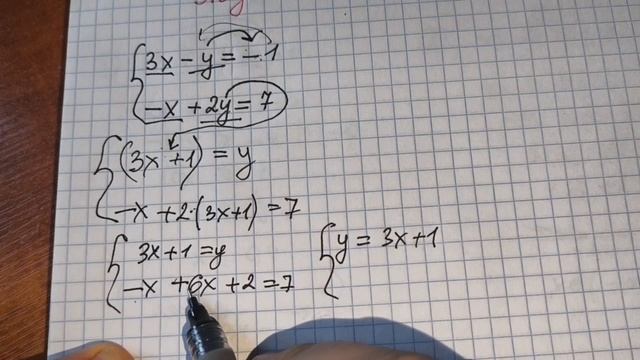 3x - y = -1
-x + 2y = 7
(3x + 1) = y
-x + 2·(3x+1) = 7
3x+1 = y
-x + 6x + 2 = 7
y = 3x+1